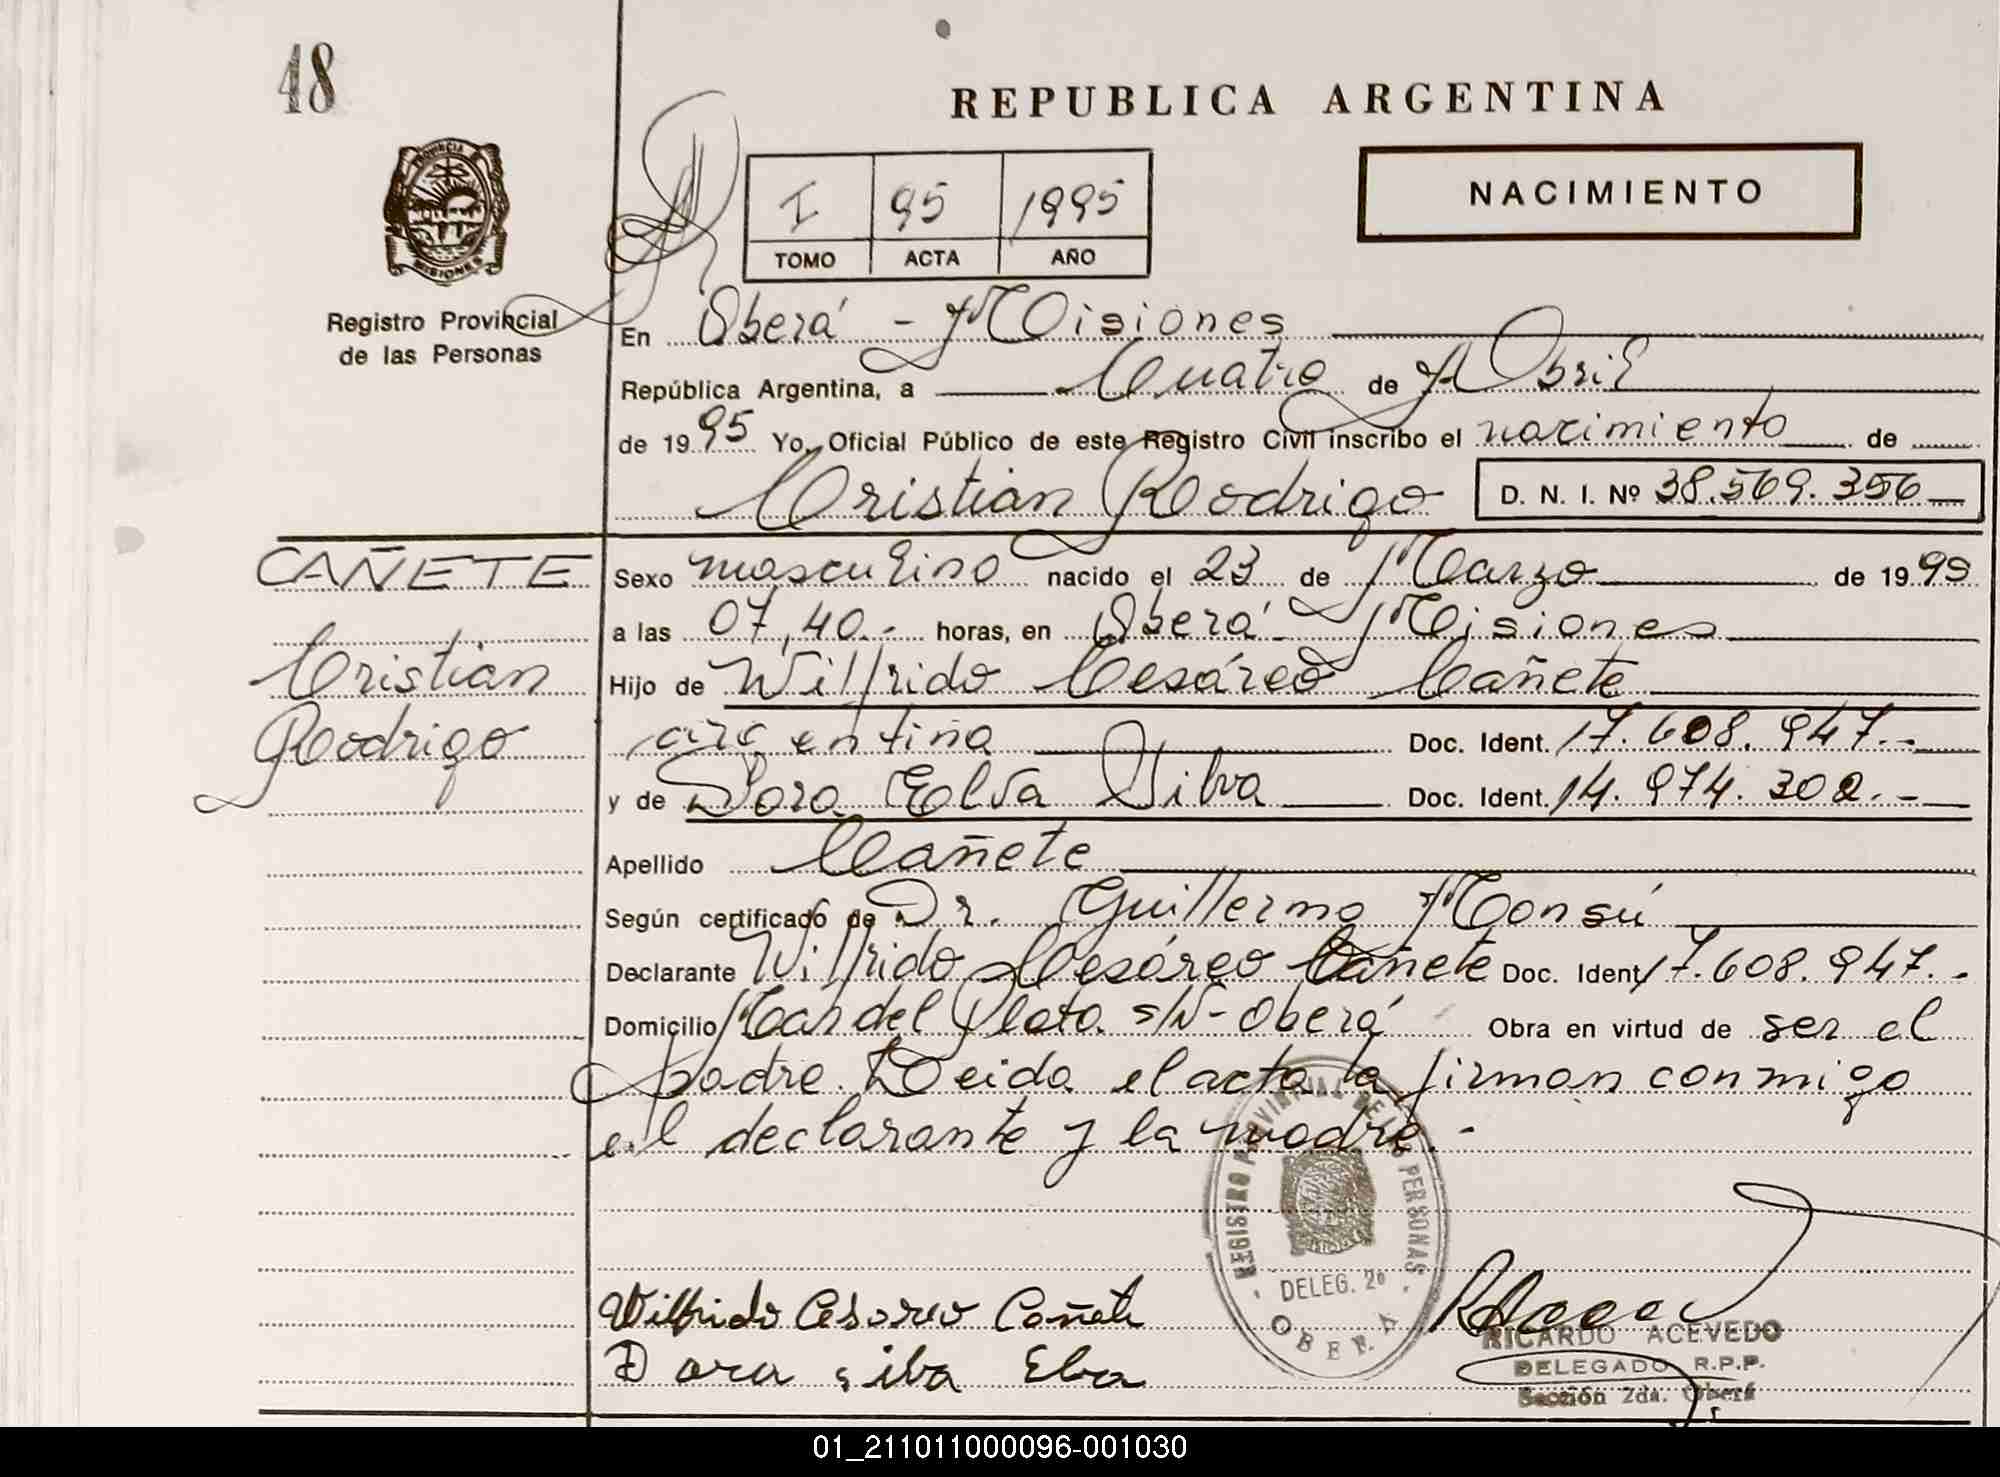 48
REPUBLICA ARGENTINA
PROVINCIA
MISIONES
Registro Provincial
de las Personas
I 95 1995
TOMO ACTA AÑO
NACIMIENTO
En Oberá - Misiones
República Argentina, a Cuatro de Abril
de 1995 Yo, Oficial Público de este Registro Civil inscribo el nacimiento de
Cristian Rodrigo D. N. I. Nº 38.569.356
CAÑETE
Cristian
Rodrigo
Sexo masculino nacido el 23 de Marzo de 1995
a las 07,40.- horas, en Oberá - Misiones
Hijo de Wilfrido Cesáreo Cañete
argentina Doc. Ident. 17.608.947.-
y de Dora Elva Silva Doc. Ident. 14.974.302.-
Apellido Cañete
Según certificado de Dr. Guillermo Monsú
Declarante Wilfrido Cesáreo Cañete Doc. Ident 17.608.947.-
Domicilio Mar del Plata s/N - Oberá Obra en virtud de ser el
padre. Leida el acta la firman conmigo
el declarante y la madre.-
REGISTRO PROVINCIAL DE LAS PERSONAS
- DELEG. 2º -
OBERA
Wilfrido Cesareo Cañete
Dora silva Elva
RICARDO ACEVEDO
DELEGADO R.P.P.
Sección 2da. Oberá
01_211011000096-001030